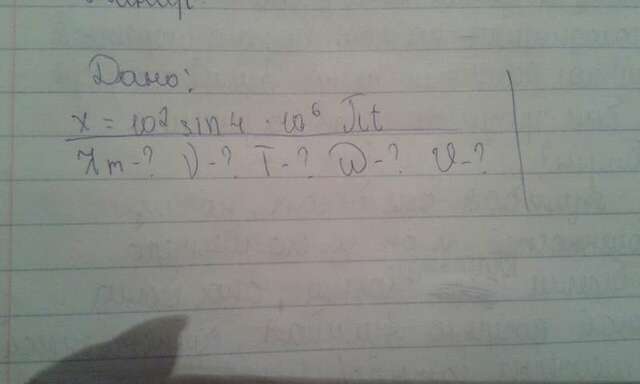 Дано:
x = 10² sin 4 · 10⁶ πt
Xm-? ν-? T-? W-? υ-?